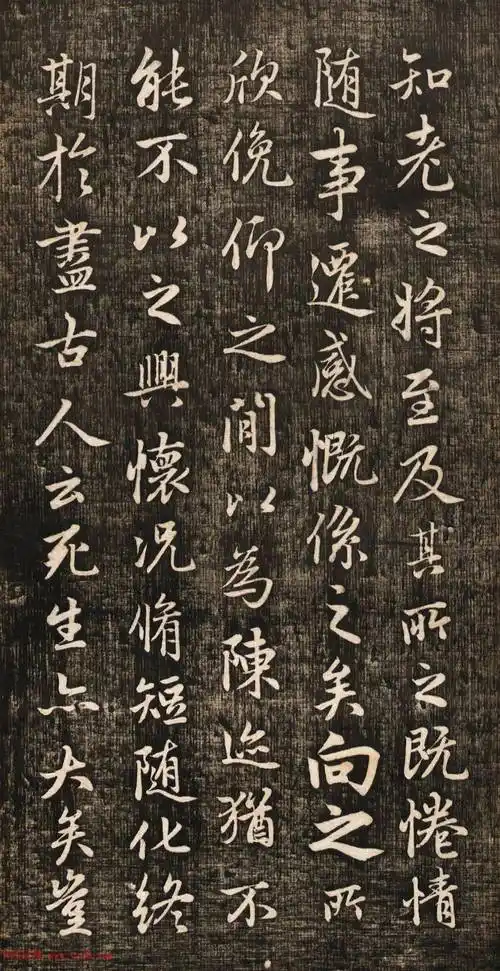 知老之將至及其所之既惓情
随事遷感慨係之矣向之所
欣俛仰之閒以為陳迹猶不
能不以之興懷况脩短随化終
期於盡古人云死生亦大矣豈